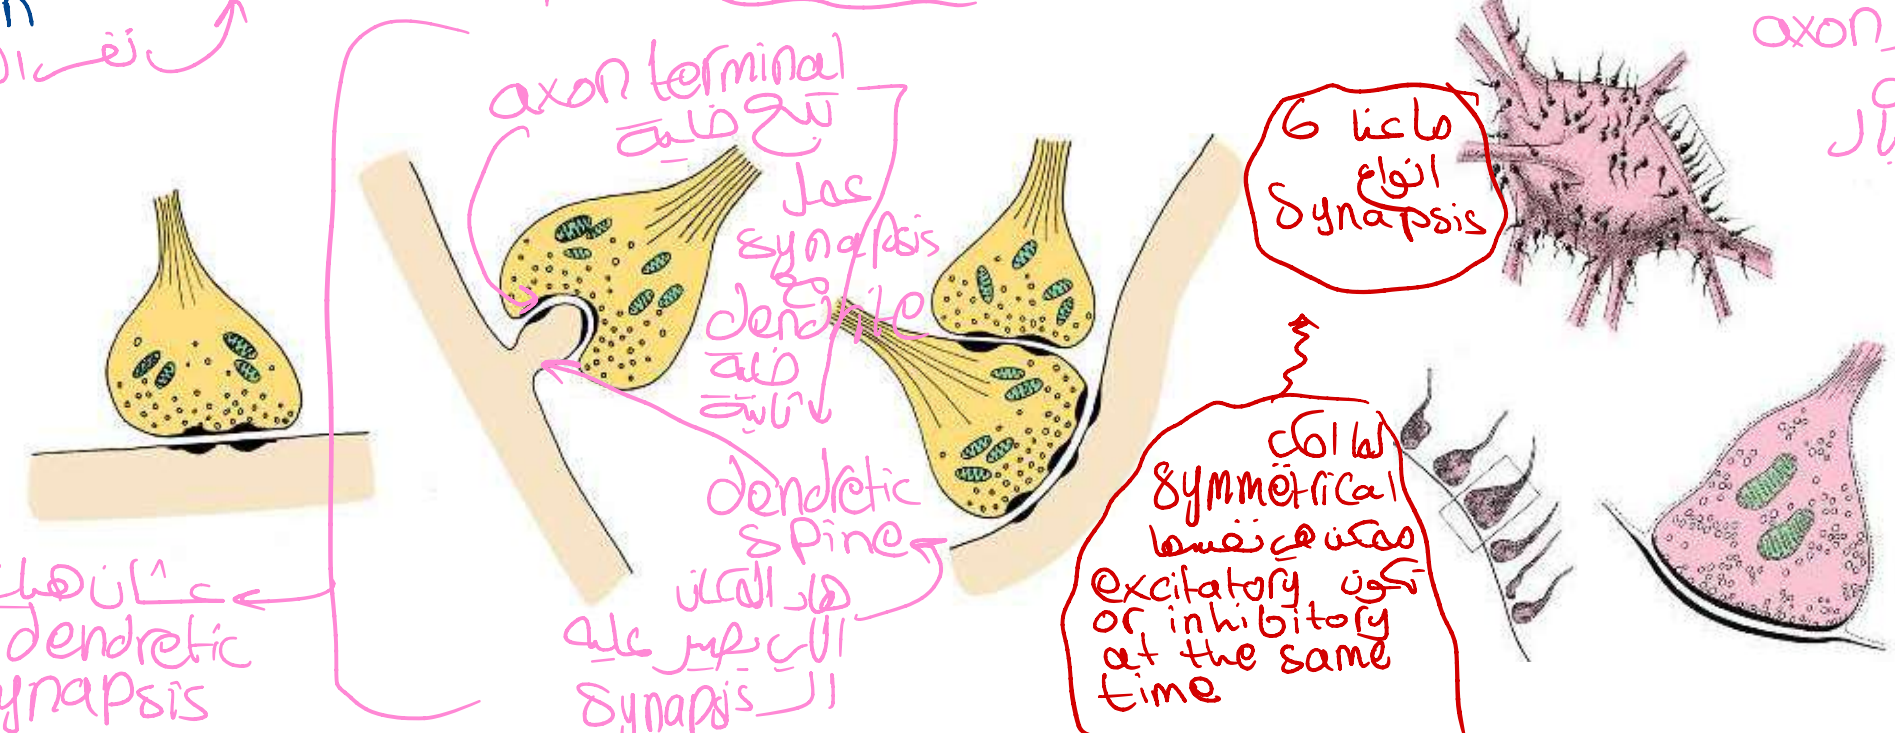 axon terminal
تبع خلية
عمل
synapsis
مع
dendrite
خلية
ثانية
dendretic
spine
هاد المكان
الي بصير عليه
ال synapsis
عشان هيك
dendretic
ynapsis
ما عنا 6
انواع
Synapsis
symmetrical
ممكن هي نفسها
تكون excitatory
or inhibitory
at the same
time
axon